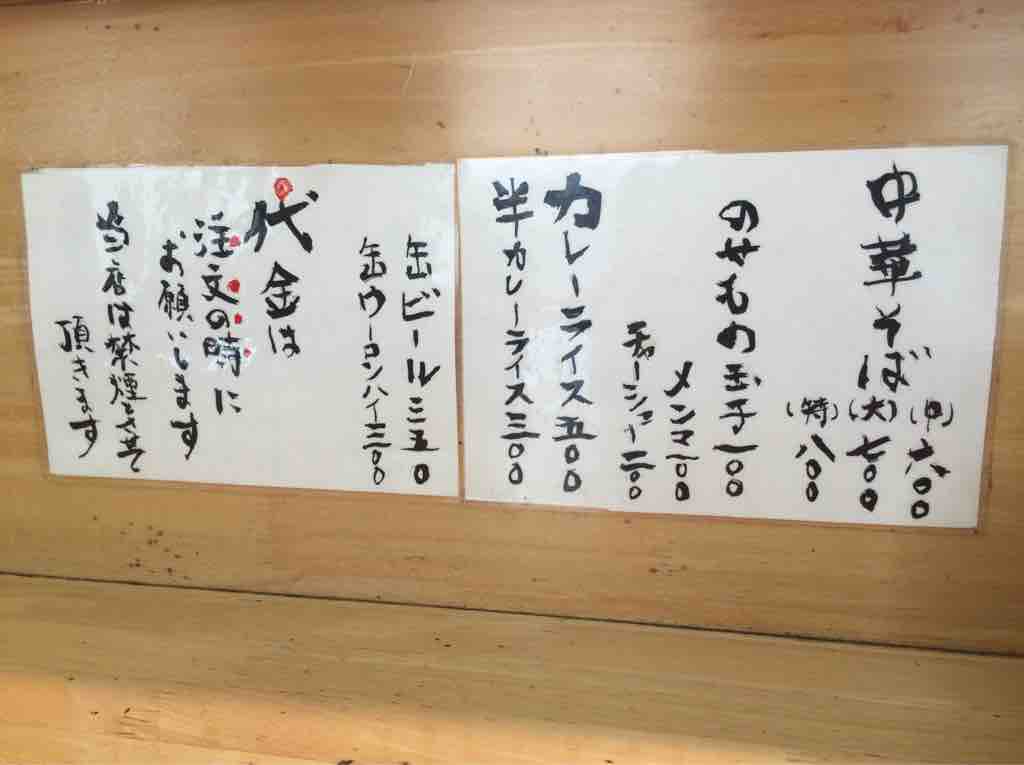 中華そば
(中)六00
(大)七00
(特)八00
のせもの玉子一00
メンマ一00
チャーシュー二00
カレーライス五00
半カレーライス三00
缶ビール三五0
缶ウーロンハイ三00
代金は
注文の時に
お願いします
当店は禁煙とさせて
頂きます